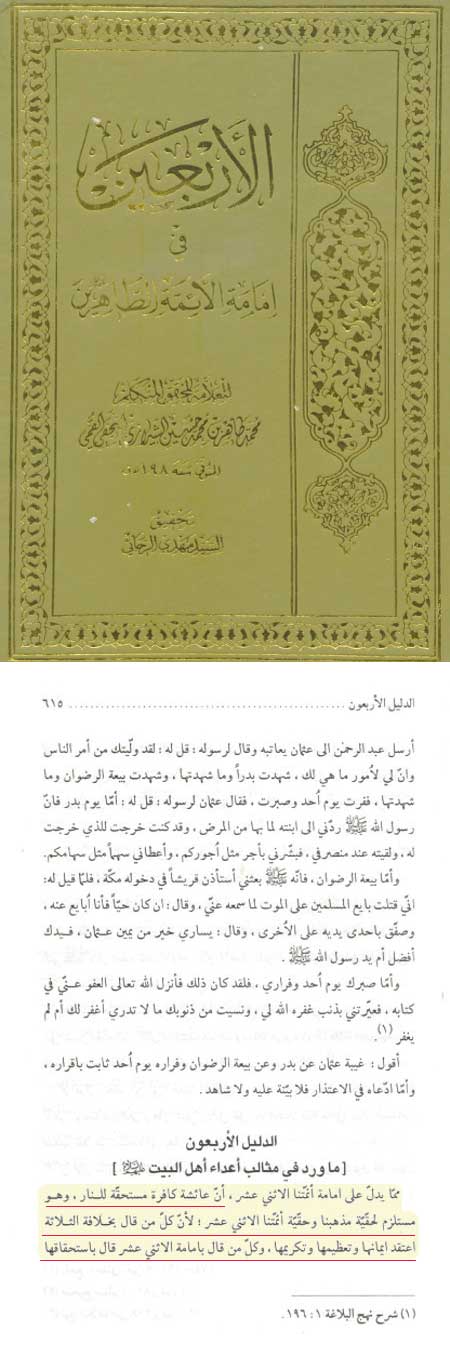 الأربعين
في
إمامة الأئمة الطاهرين
للعلامة المحقق المتكلم
محمد طاهر بن محمد حسين الشيرازي النجفي القمي
المتوفى سنة ١٠٩٨ هـ ق
تحقيق
السيد مهدي الرجائي
الدليل الأربعون ........................................................ ٦١٥
أرسل عبد الرحمٰن الى عثمان يعاتبه وقال لرسوله : قل له : لقد ولّيتك من أمر الناس
وانّ لي لأمور ما هي لك ، شهدت بدراً وما شهدتها ، وشهدت بيعة الرضوان وما
شهدتها ، ففرت يوم أحد وصبرت ، فقال عثمان لرسوله : قل له : أمّا يوم بدر فانّ
رسول الله ﷺ ردّني الى ابنته لما بها من المرض ، وقد كنت خرجت للذي خرجت
له ، ولقيته عند منصرفي ، فبشّرني بأجر مثل أجوركم ، وأعطاني سهماً مثل سهامكم.
وأمّا بيعة الرضوان ، فانّه ﷺ بعثني أستأذن قريشاً في دخوله مكّة ، فلمّا قيل له:
انّي قتلت بايع المسلمين على الموت لما سمعه عنّي ، وقال : ان كان حيّاً فأنا أبايع عنه ،
وصفّق باحدى يديه على الأخرى ، وقال : يساري خير من يمين عثمان ، فيدك
أفضل أم يد رسول الله ﷺ .
وأمّا صبرك يوم أحد وفراري ، فلقد كان ذلك فأنزل الله تعالى العفو عنّي في
كتابه ، فعيّرتني بذنب غفره الله لي ، ونسيت من ذنوبك ما لا تدري أغفر لك أم لم
يغفر (١).
أقول : غيبة عثمان عن بدر وعن بيعة الرضوان وفراره يوم أحد ثابت باقراره ،
وأمّا ادّعاه في الاعتذار فلا بيّنة عليه ولا شاهد .
الدليل الأربعون
[ ما ورد في مثالب أعداء أهل البيت ﷺ ]
ممّا يدلّ على امامة أئمّتنا الاثني عشر ، أنّ عائشة كافرة مستحقّة للنار ، وهو
مستلزم لحقّيّة مذهبنا وحقّيّة أئمّتنا الاثني عشر ؛ لأنّ كلّ من قال بخلافة الثلاثة
اعتقد ايمانها وتعظيمها وتكريمها ، وكلّ من قال بامامة الاثني عشر قال باستحقاقها
(١) شرح نهج البلاغة ١ : ١٩٦ .